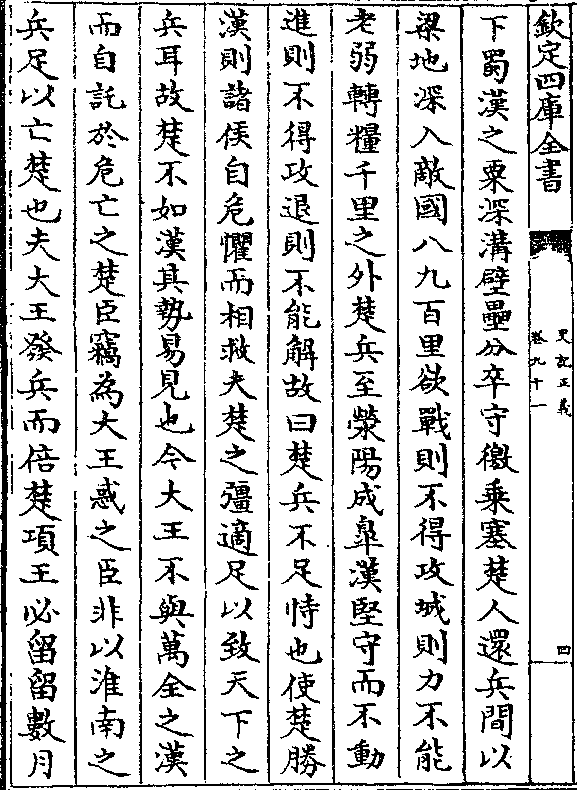 欽定四庫全書
史記正義
卷九十一
四
下蜀漢之粟深溝壁壘分卒守徼乘塞楚人還兵間以
梁地深入敵國八九百里欲戰則不得攻城則力不能
老弱轉糧千里之外楚兵至滎陽成臯漢堅守而不動
進則不得攻退則不能解故曰楚兵不足恃也使楚勝
漢則諸侯自危懼而相救夫楚之彊適足以致天下之
兵耳故楚不如漢其勢易見也今大王不與萬全之漢
而自託於危亡之楚臣竊為大王惑之臣非以淮南之
兵足以亡楚也夫大王發兵而倍楚項王必留留數月